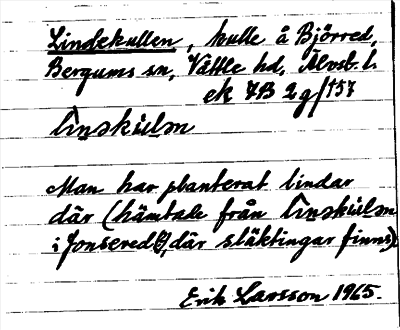 Lindekullen, kulle å Björred,
Bergums sn, Vättle hd, Älvsb. l.
ek 7B 2g/157
lin̥əkulən
Man har planterat lindar
där (hämtade från lin̥əkulən
i Jonsered, där släktingar finns)
Erik Larsson 1965.